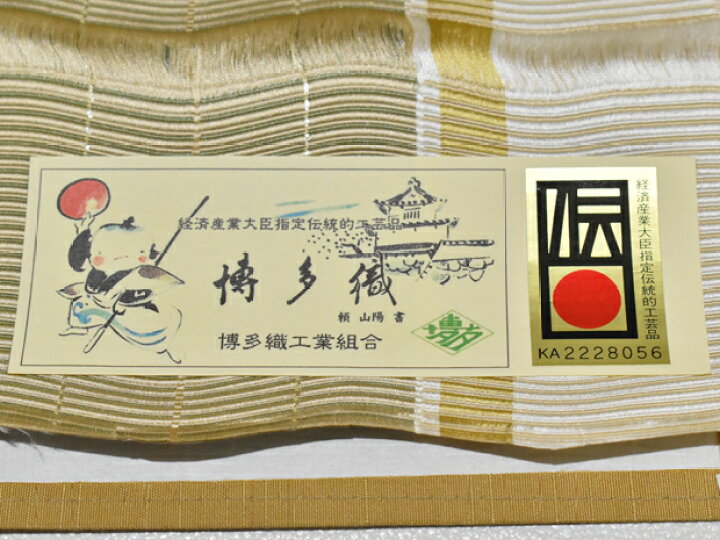 経済産業大臣指定伝統的工芸品
博多織
頼山陽書
博多織工業組合
伝
経済産業大臣指定伝統的工芸品
KA2228056